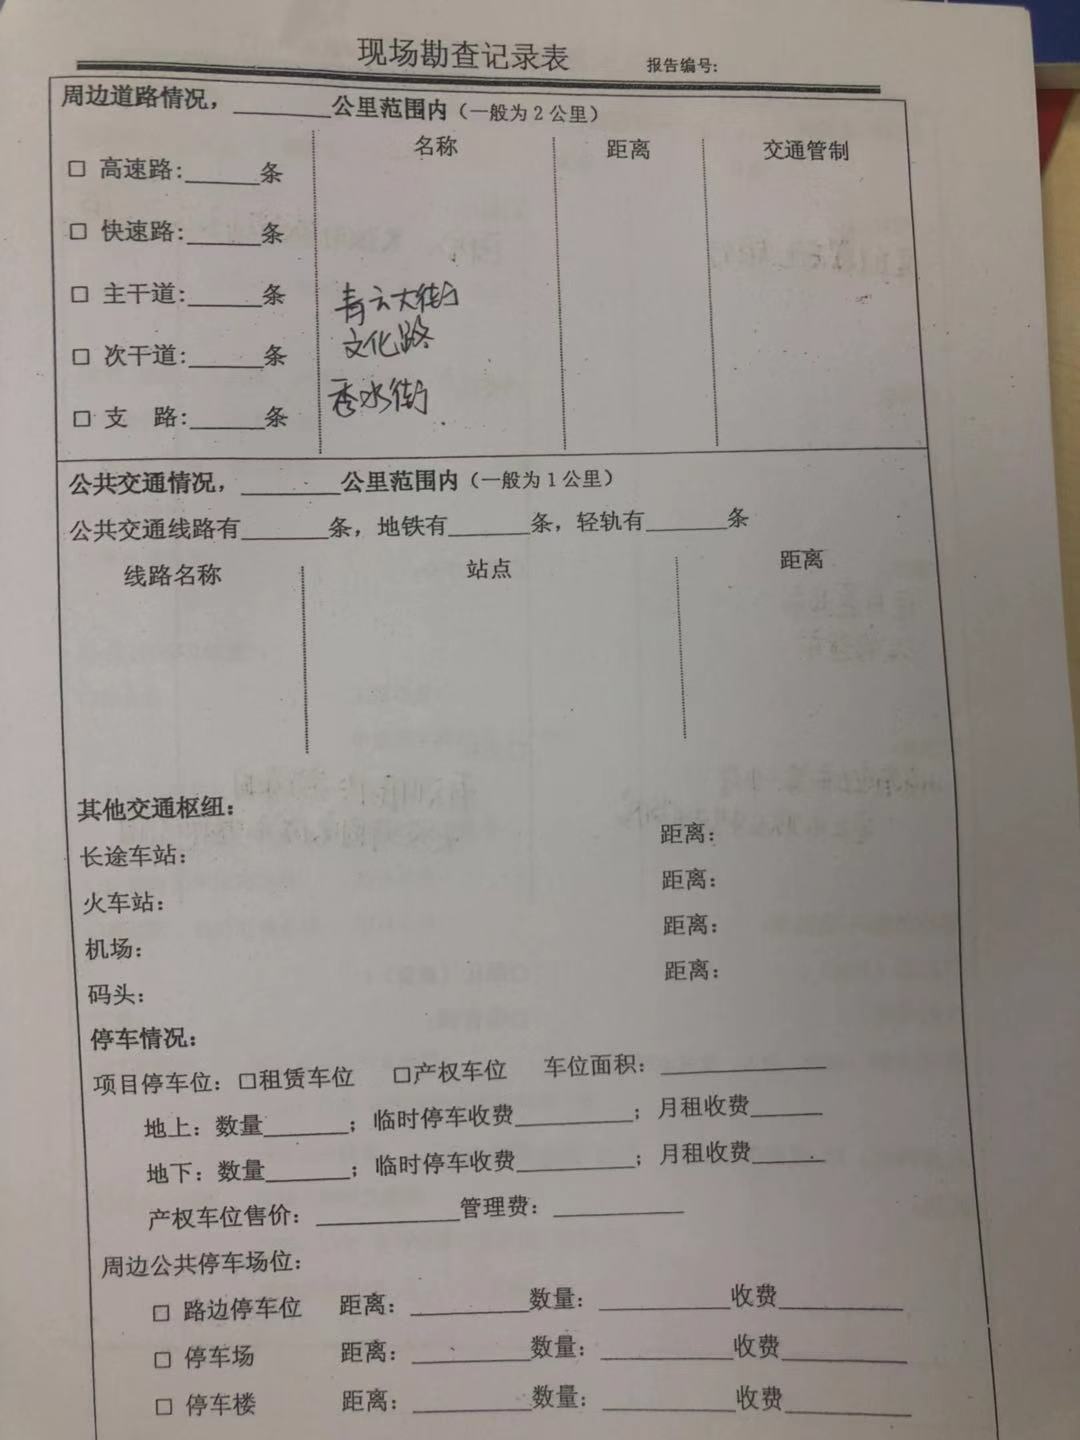 现场勘查记录表 报告编号:
周边道路情况，________公里范围内（一般为2公里）
名称 距离 交通管制
□ 高速路:______条
□ 快速路:______条
□ 主干道:______条 青云大街
□ 次干道:______条 文化路
□ 支 路:______条 秀水街
公共交通情况，________公里范围内（一般为1公里）
公共交通线路有_______条，地铁有_______条，轻轨有_______条
线路名称 站点 距离
其他交通枢纽：
长途车站： 距离：
火车站： 距离：
机场： 距离：
码头： 距离：
停车情况：
项目停车位：□租赁车位 □产权车位 车位面积：______________
地上：数量_______；临时停车收费__________；月租收费______
地下：数量_______；临时停车收费__________；月租收费______
产权车位售价：____________管理费：___________
周边公共停车场位：
□ 路边停车位 距离：__________数量：___________收费__________
□ 停车场 距离：__________数量：___________收费__________
□ 停车楼 距离：__________数量：___________收费__________